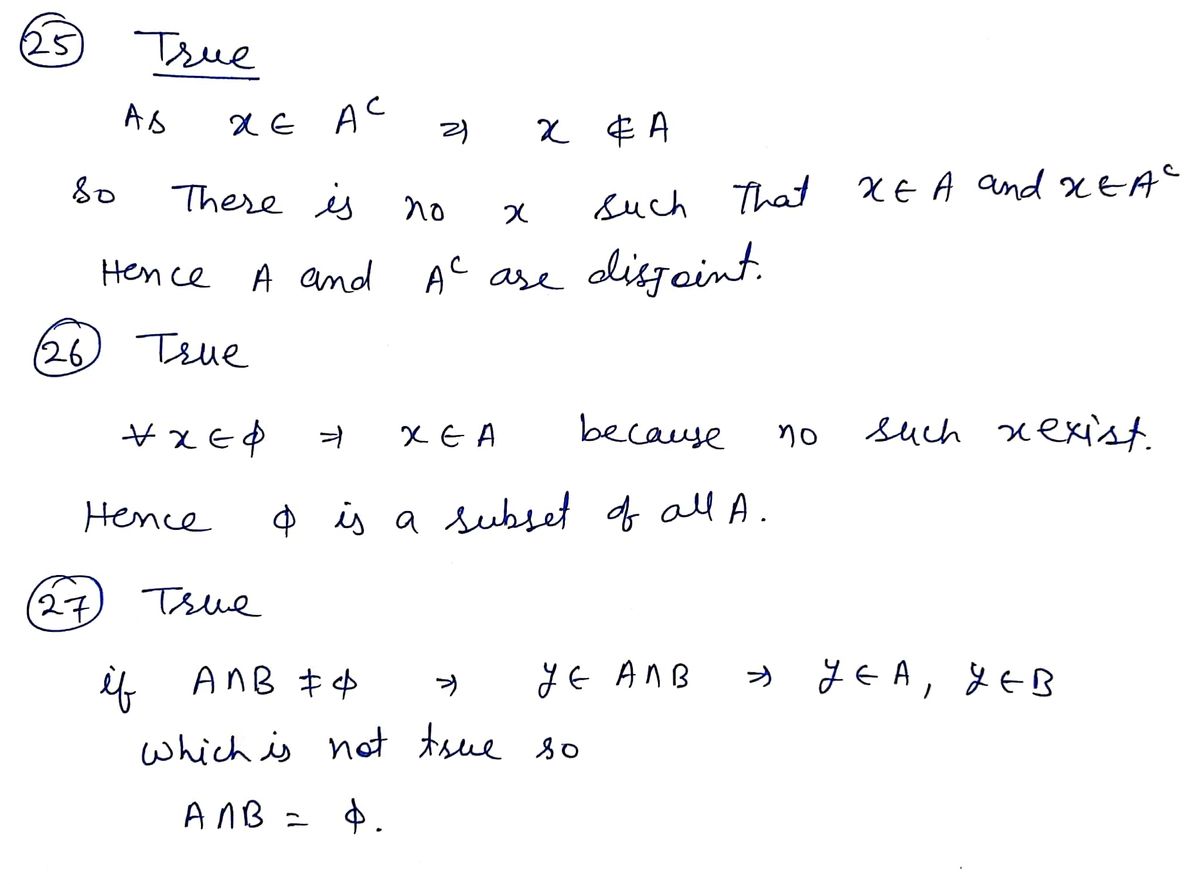 25 True
As x ∈ A^c ⇒ x ∉ A
So There is no x such That x ∈ A and x ∈ A^c
Hence A and A^c are disjoint.
26 True
∀ x ∈ ϕ ⇒ x ∈ A because no such x exist.
Hence ϕ is a subset of all A.
27 True
if A∩B ≠ ϕ ⇒ y ∈ A∩B ⇒ y ∈ A, y ∈ B
which is not true so
A∩B = ϕ.